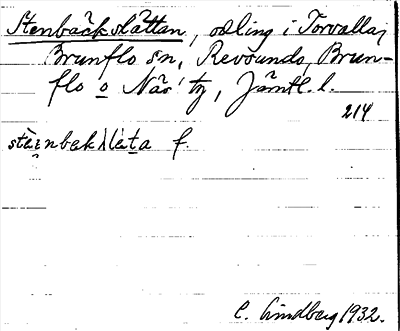 Stenbäckslåttan, odling i Torvalla,
Brunflo sn, Revsunds, Brun-
flo o Näs' tg, Jämtl. l.
214
stèi̯nbekslå̀ta f.
C. Lindberg 1932.